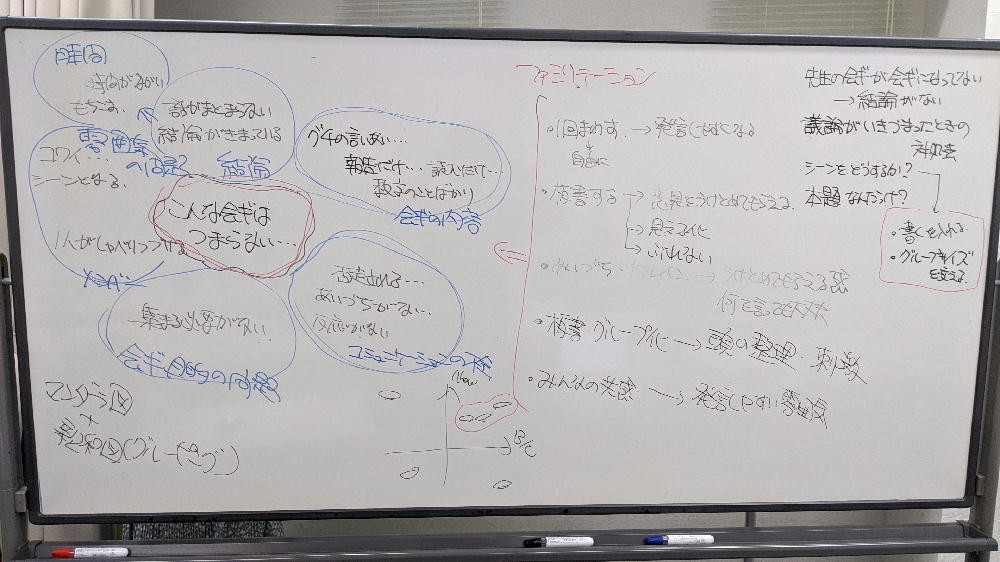 時間
時間がながい
もちこす、
話がまとまらない
結論がきまっている
結論
雰囲気
の問題?
コワイ…
シーンとなる、
1人がしゃべりつづける
メンバー
グチの言いあい…
報告だけ… 読むだけ…
数字のことばかり
会ぎの内容
こんな会ぎは
つまらない…
否定される…
あいづちがない…
反応がない
コミュニケーションの
集まる必要がない
会ぎ目的の問題
マンダラ図
×
親和図(グルーピング)
ファシリテーション
・1回まわす。→ 発言しやすくなる
自由に
・板書する → 意見をうけとめてもらえる、
→ 見える化
→ ぶれない
・あいづち・リフレイン → うけとめてもらえる感
何を言っても大丈夫
・板書 グループ化 → 頭の整理・刺激
・みんなの笑顔 → 発言しやすい雰囲気
先生の会ぎが会ぎになってない
→ 結論がない
議論がいきづまったときの
対処法
シーンをどうするか?
本題なんだっけ?
・書くを入れる
・グループサイズ
を変える